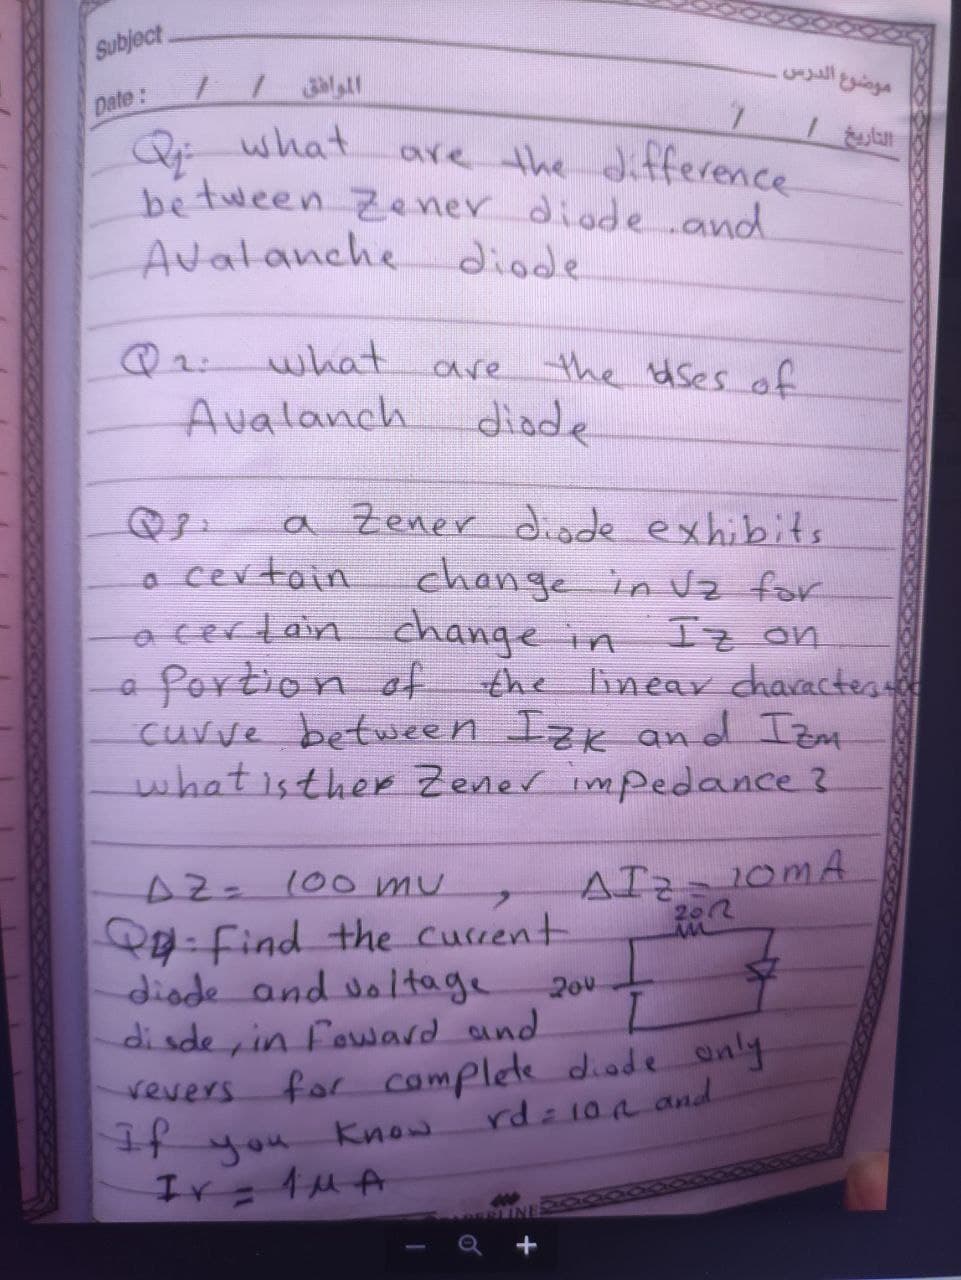 Subject
موضوع الدرس
Date : / / الموافق
/ / التاريخ
Q1: what are the difference
between Zener diode and
Avalanche diode
Q2: what are the uses of
Avalanch diode
Q3: a Zener diode exhibits
a certain change in Vz for
a certain change in Iz on
a Portion of the linear
curve between IZK and IZM
what is Zener impedance ?
ΔZ= 100 mV , ΔIz = 10mA
20Ω
Q4: find the current
diode and voltage 20V
diode, in Foward and
revers for complete diode only
If you know rd=10Ω and
Ir = 1μA